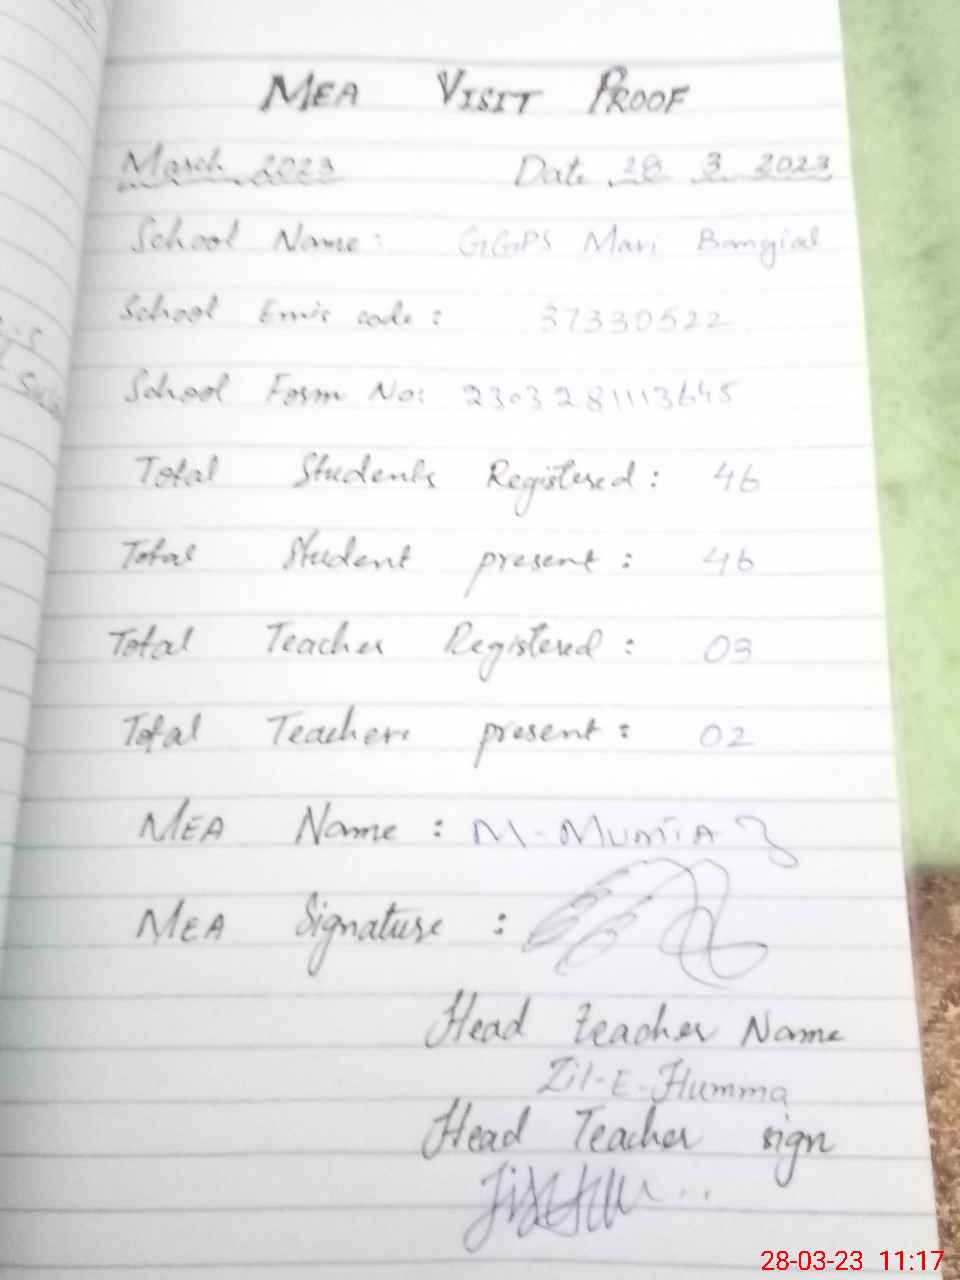 MEA VISIT PROOF
March 2023 Date 28 3 2023
School Name: GGPS Mari Bangial
School Emis code: 37330522
School Form No: 2303281113645
Total Students Registered: 46
Total Student present: 46
Total Teacher Registered: 03
Total Teachers present: 02
MEA Name: M-MUMTAZ
MEA Signature:
Head teacher Name
Zil-E-Humma
Head Teacher sign
28-03-23 11:17